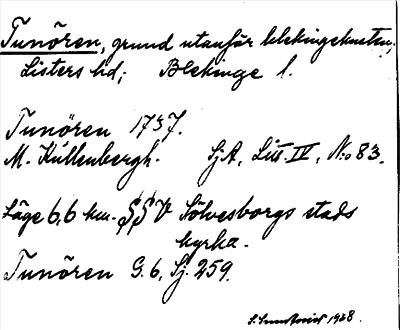 Tunören, grund utanför blekingekusten;
Listers hd; Blekinge l.
Tunören 1737.
M. Küllenbergh. Sj.A, Litt. IV, No 83.
Läge 6,6 km. SSV Sölvesborgs stads
kyrka.
Tunören G. 6, Sj. 259.
S. Sundqvist 1928.